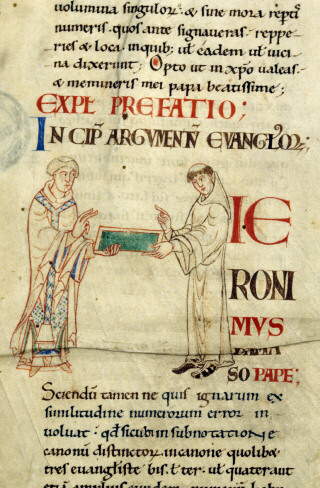 volumina singulor; & sine mora repti
numeris. quos ante signaueras. reppe-
ries & loca. in quib; ut eadem. ut uici-
na dixerunt; Opto ut in xpo ualeas.
& memineris mei papa beatissime;
EXPL PREFATIO;
INCIP ARGVMENTV EVANGLOR;
IE
RONI
MVS
SO PAPE;
Sciendu tamen ne quis ignarum ex
similitudine numerorum error in
uoluat. qd sicubi in subnotatione
canonu distinctor. in canone quolibe
tres euangliste bis. t ter. ut quaterant